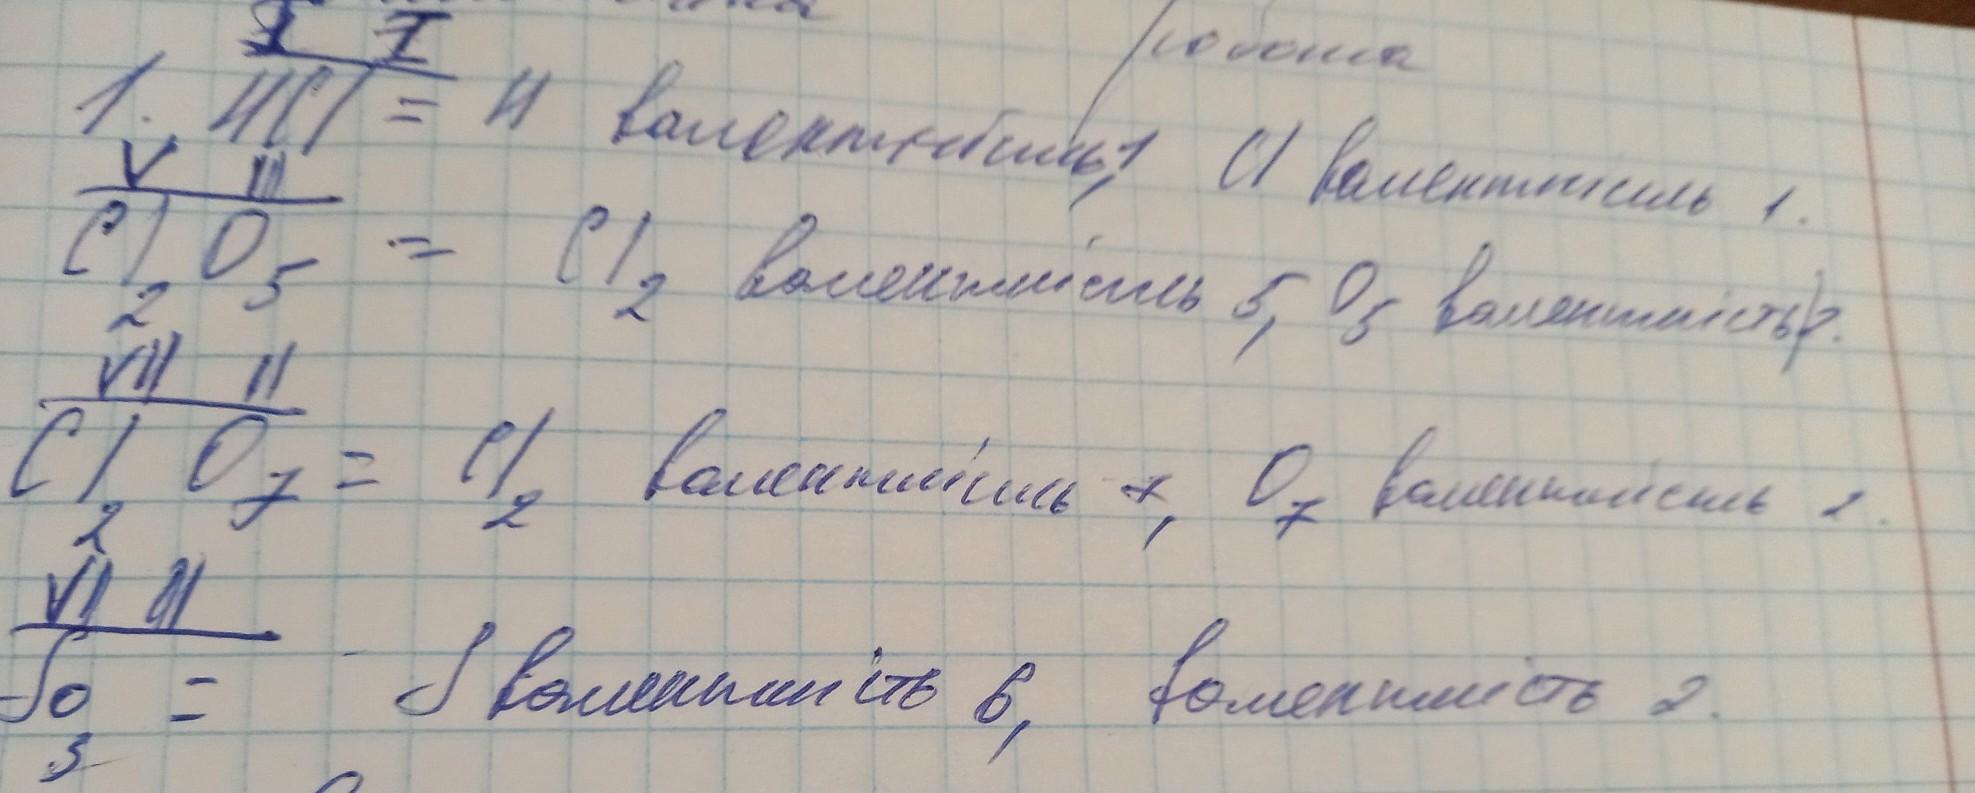 робота
I I
1. HCl = H валентність 1, Cl валентність 1.
V III
Cl2O5 = Cl2 валентність 5, O5 валентність 2.
VII II
Cl2O7 = Cl2 валентність 7, O7 валентність 2.
VI II
SO3 = S валентність 6, валентність 2.